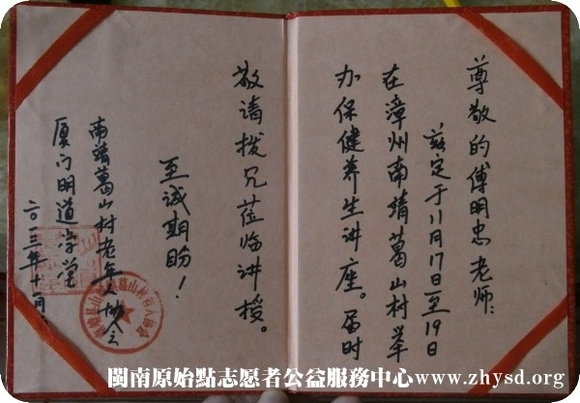 尊敬的傅明忠老师：
兹定于11月17日至19日
在漳州南靖葛山村举
办保健养生讲座。届时
敬请拨冗莅临讲授。
至诚期盼！
南靖葛山村老年协会
厦门明道学堂
二〇一三年十一月
閩南原始點志愿者公益服務中心www.zhysd.org